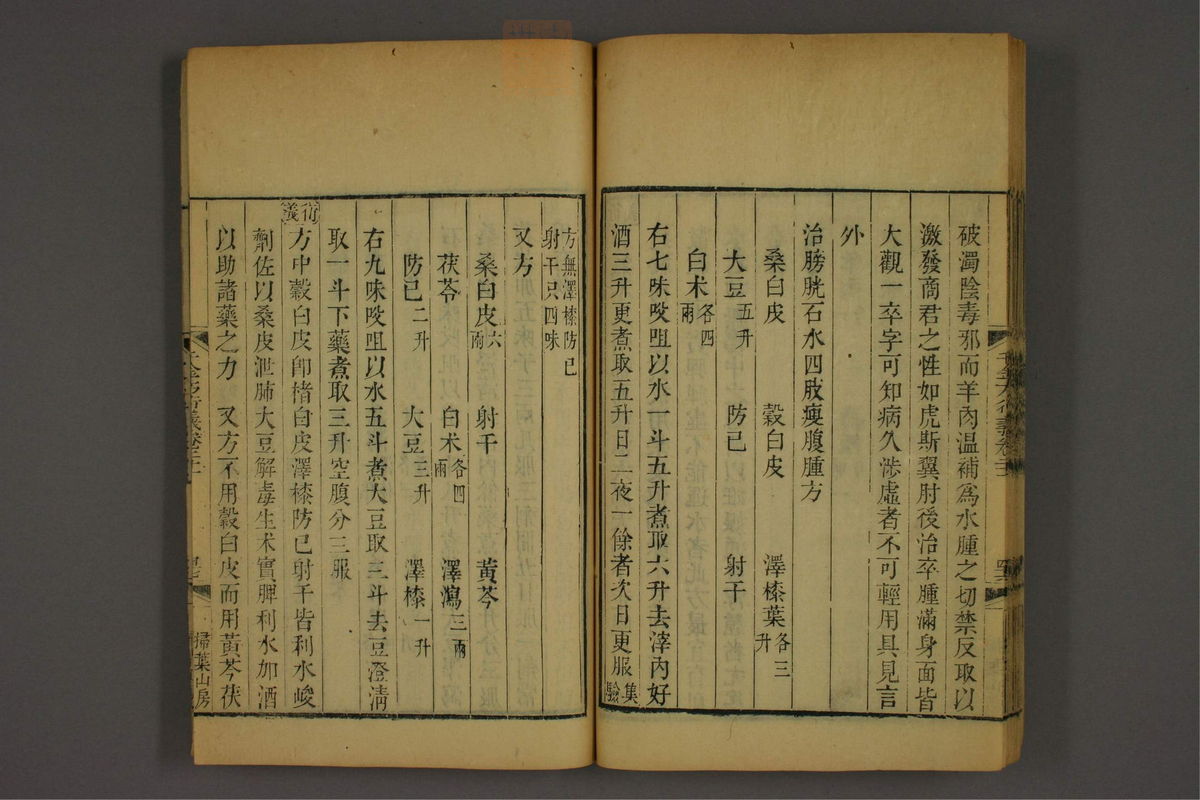 破濁陰毒邪而羊肉溫補爲水腫之切禁反取以
激發商君之性如虎斯翼肘後治卒腫滿身面皆
大觀一卒字可知病久涉虛者不可輕用具見言
外
治膀胱石水四肢瘦腹腫方
桑白皮 穀白皮 澤㯃葉各三升
大豆五升 防已 射干
白朮各四兩
右七味㕮咀以水一斗五升煮取六升去滓內好
酒三升更煮取五升日二夜一餘者次日更服集驗
方無澤㯃防已
射干只四味
又方
桑白皮六兩 射干 黃芩
茯苓 白朮各四兩 澤瀉三兩
防已二升 大豆三升 澤㯃一升
右九味㕮咀以水五斗煮大豆取三斗去豆澄淸
取一斗下藥煮取三升空腹分三服
衍義
方中穀白皮卽楮白皮澤㯃防已射干皆利水峻
劑佐以桑皮泄肺大豆解毒生朮實脾利水加酒
以助諸藥之力 又方不用穀白皮而用黃芩茯
掃葉山房